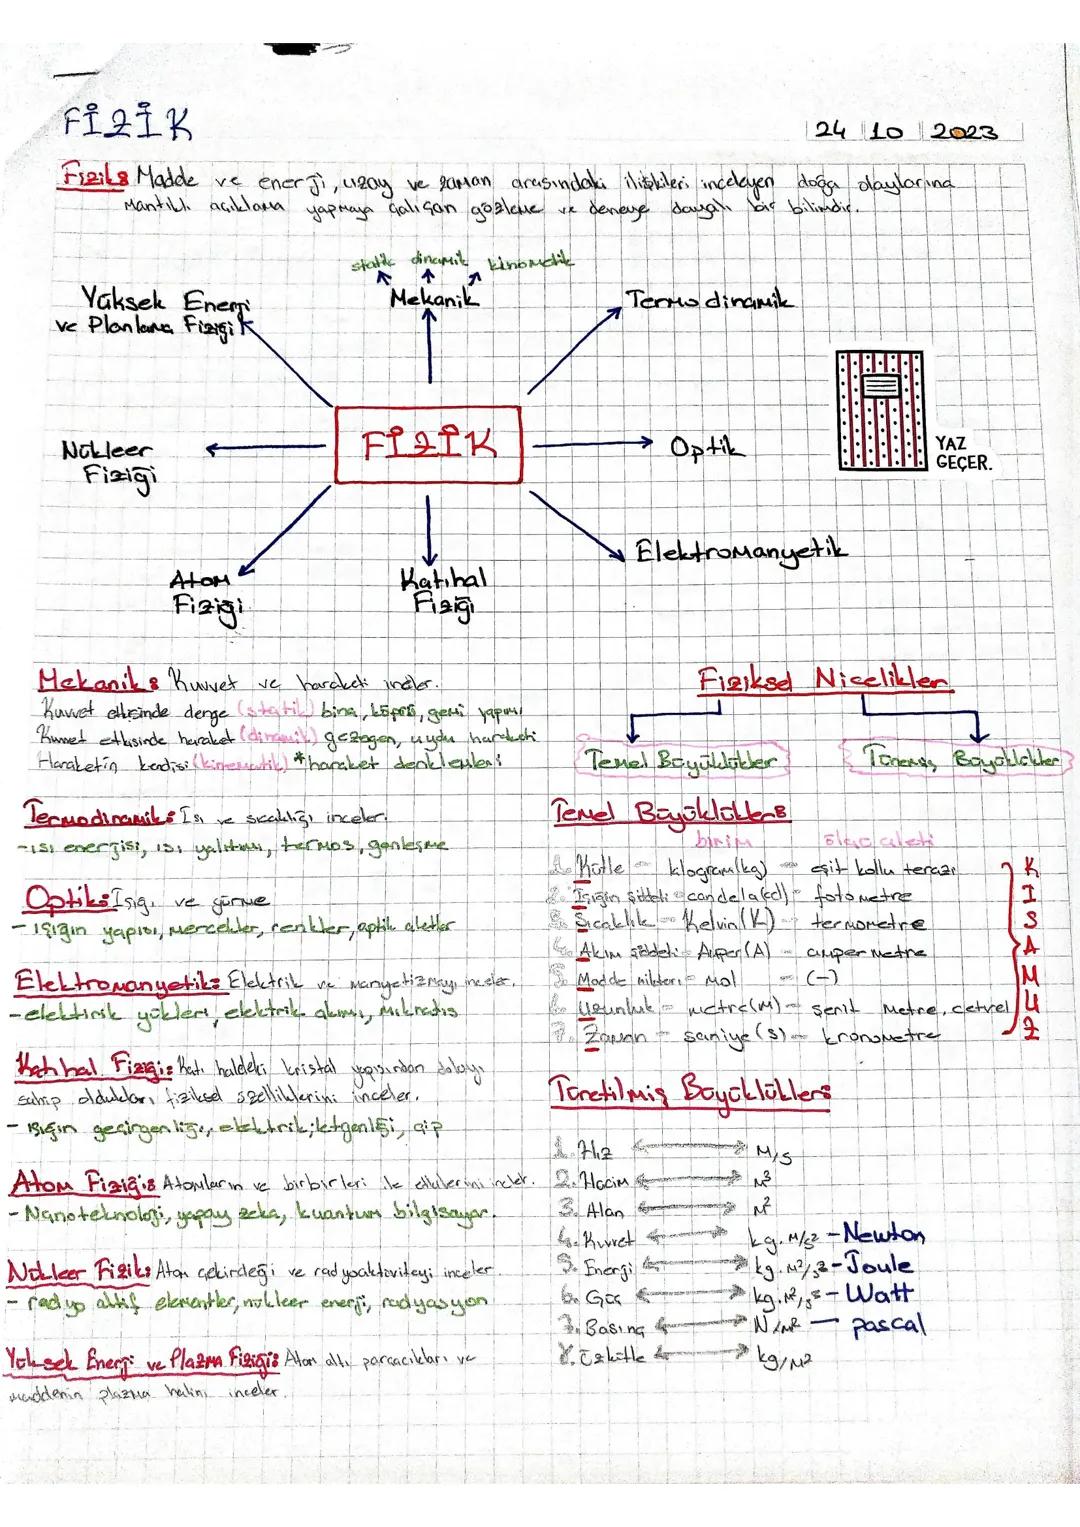 FİZİK
24 10 2023
Fizik: Madde ve enerji, uzay ve zaman arasındaki ilişkileri inceleyen doğa olaylarına
Mantıklı açıklama yapmaya çalışan gözleme ve deneye dayalı bir bilimdir.
statik dinamik kinometik
Mekanik
Yüksek Enerji
ve Planlama Fiziği
Termodinamik
FİZİK
Nükleer
Fiziği
Optik
YAZ
GEÇER.
Elektromanyetik
Atom
Fiziği
Katıhal
Fiziği
Mekanik: Kuvvet ve hareketi inceler.
Kuvvet etkisinde denge (statik) bina, köprü, gemi yapımı
Kuvvet etkisinde hareket (dinamik) gezegen, uydu hareketi
Haraketin kendisi (kinematik) *hareket denklemleri
Fiziksel Nicelikler
Temel Büyüklükler
Türemiş Büyüklükler
Termodinamik: Isı ve sıcaklığı inceler.
-ısı enerjisi, ısı yalıtımı, termos, genleşme
Optik: Işığı ve görme
- ışığın yapısı, mercekler, renkler, optik aletler
Elektromanyetik: Elektrik ve manyetizmayı inceler.
-elektirik yükleri, elektrik akımı, mıknatıs
Katıhal Fiziği: Katı haldeki kristal yapısından dolayı
sahip oldukları fiziksel özelliklerini inceler.
- ışığın geçirgenliği, elektrik iletgenliği, çip
Atom Fiziği: Atomların ve birbirleri ile etkilerini inceler.
- Nanoteknoloji, yapay zeka, kuantum bilgisayar.
Nükleer Fizik: Atom çekirdeği ve radyoaktiviteyi inceler
- radyo aktif elementler, nükleer enerji, radyasyon
Yüksek Enerji ve Plazma Fiziği: Atom altı parçacıkları ve
maddenin plazma halini inceler.
Temel Büyüklükler:
birim ölçü aleti
1. Kütle - kilogram(kg) - eşit kollu terazi K
2. Işığın şiddeti - candela(cd) - fotometre I
3. Sıcaklık - Kelvin(K) - termometre S
4. Akım şiddeti - Amper(A) - ampermetre A
5. Madde miktarı - mol - (-) M
6. Uzunluk - metre(M) - şerit Metre, cetvel U
7. Zaman - saniye(s) - kronometre Z
Türetilmiş Büyüklükler:
1. Hız M/s
2. Hacim M³
3. Alan M²
4. Kuvvet kg.M/s² - Newton
5. Enerji kg.M²/s² - Joule
6. Güç kg.M²/s³ - Watt
7. Basınç N/M² - pascal
8. Özkütle kg/M²